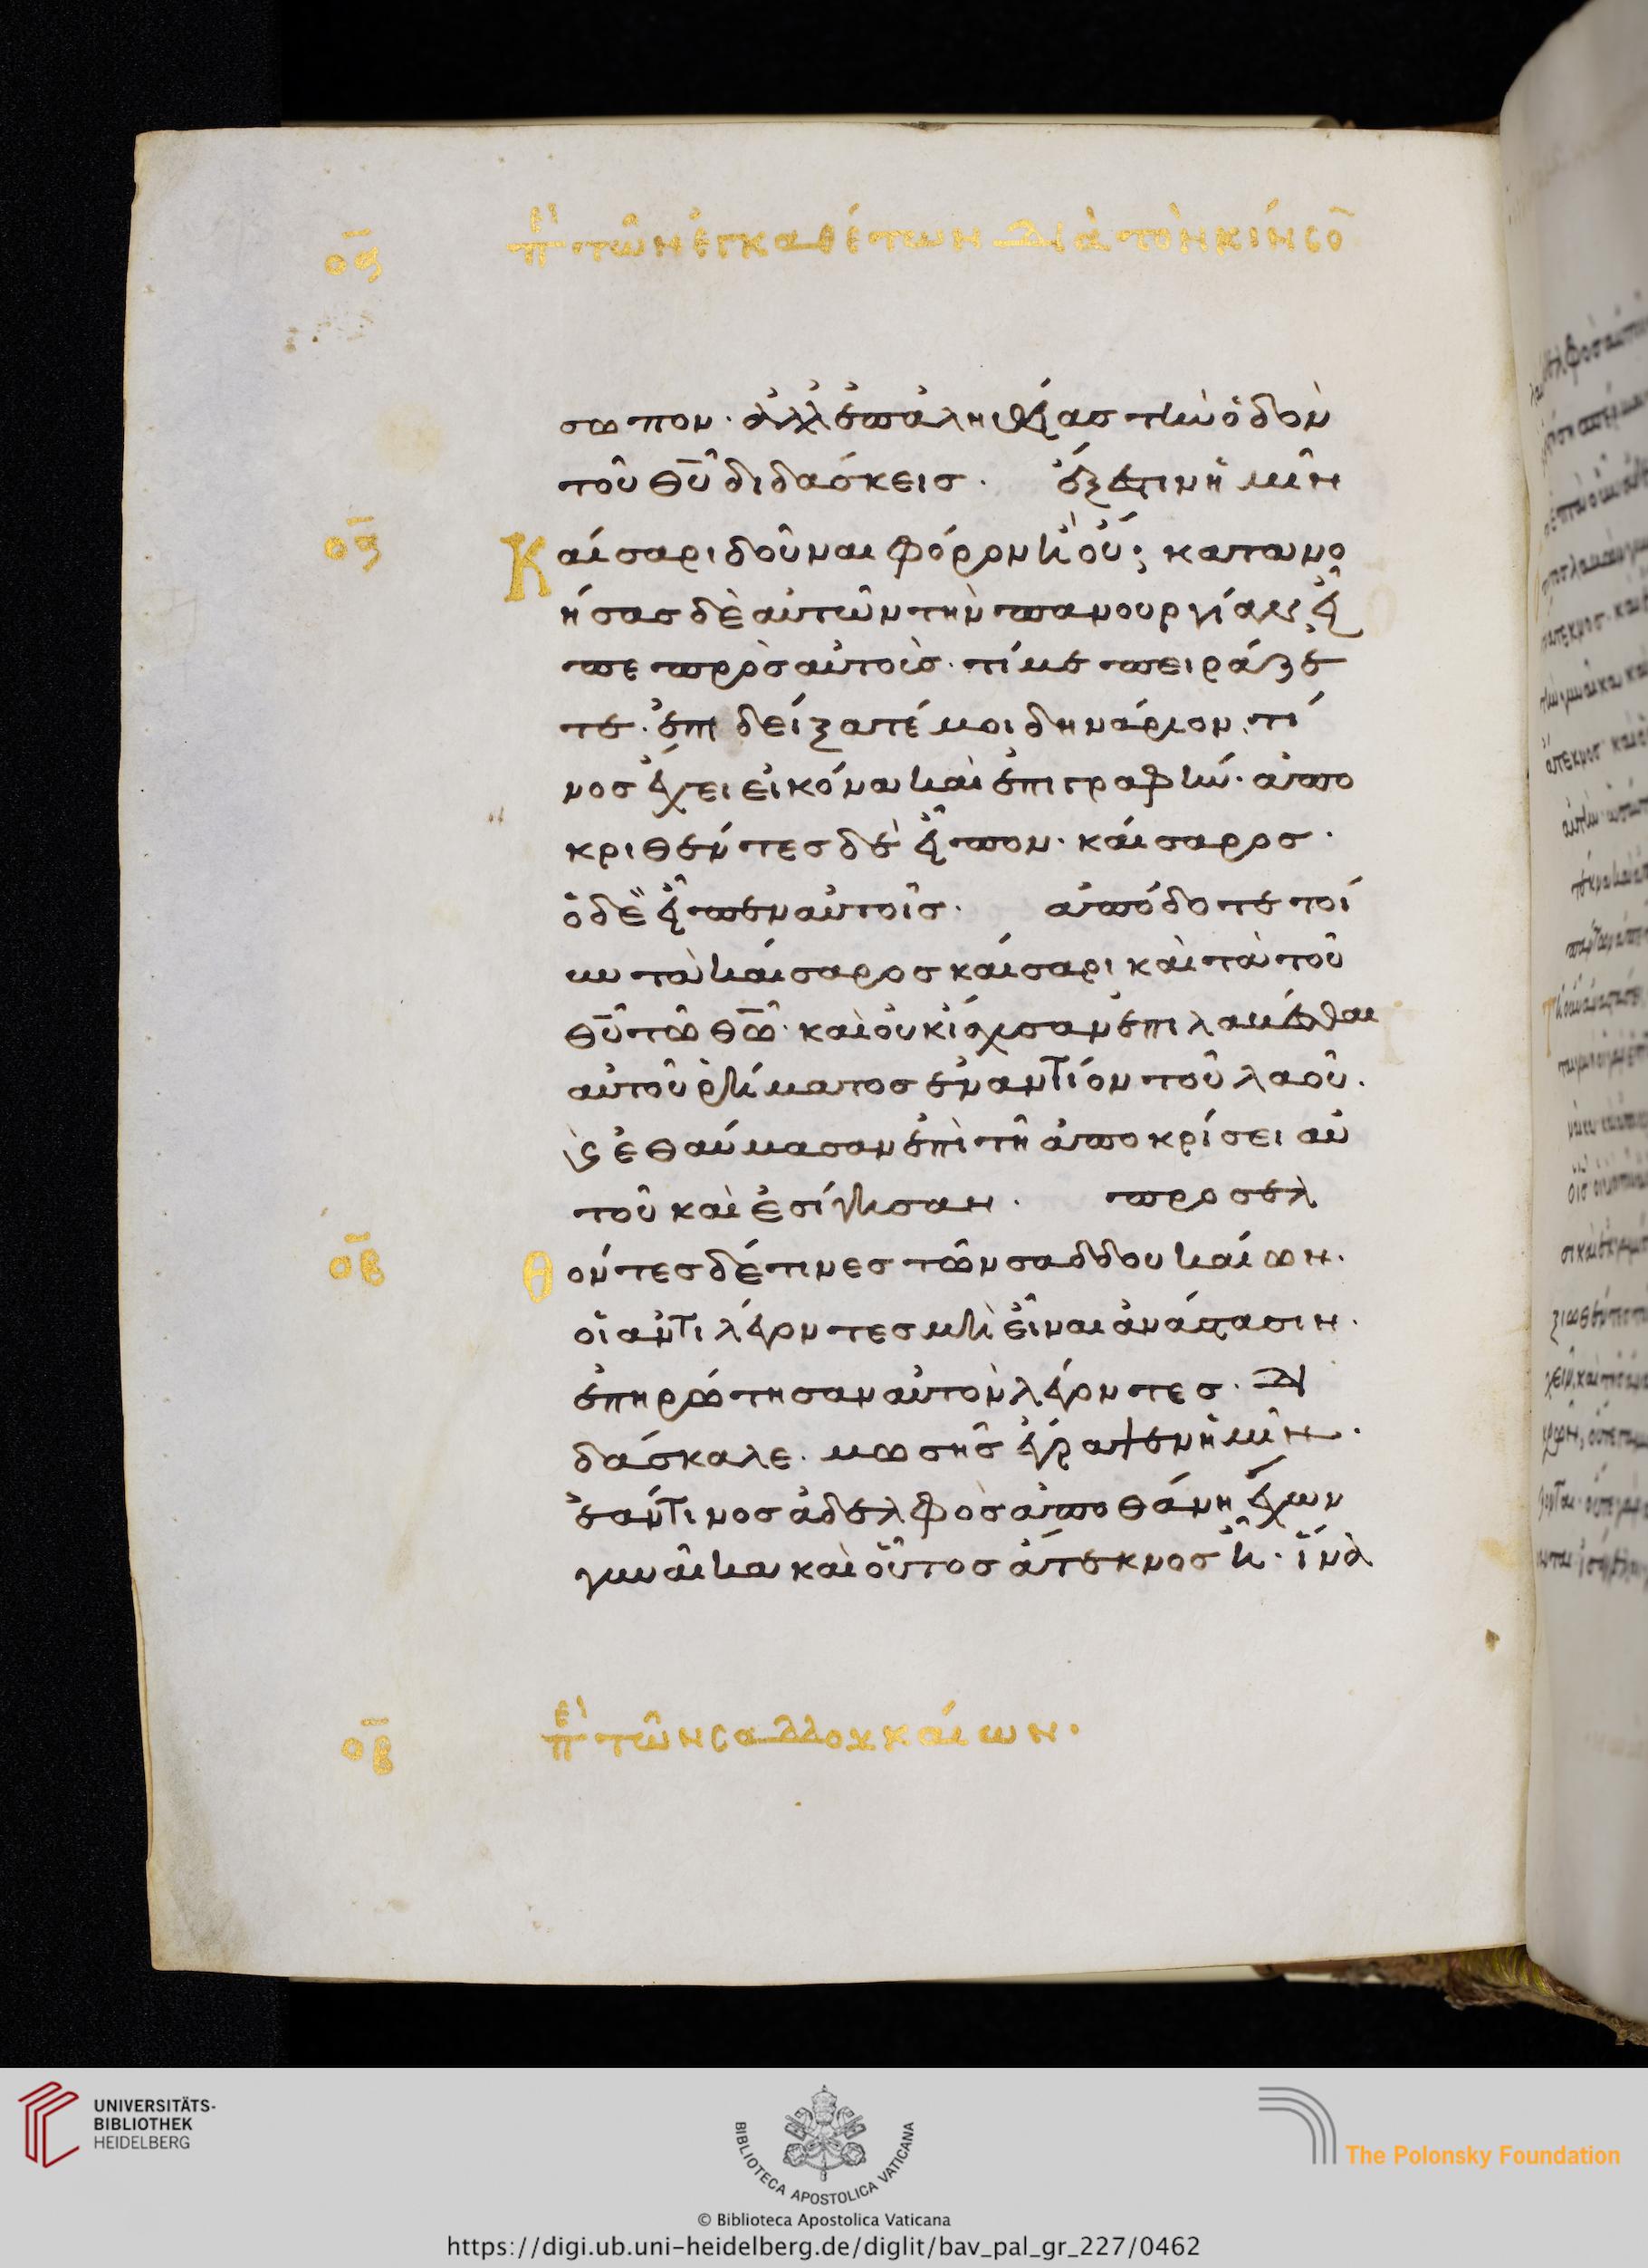 οα
περὶ τῶν ἐγκαθέτων διὰ τὸν κίνσο̅
σωπον· ἀλλ' ἐπ' ἀληθείας τὴν ὁδὸν
τοῦ θ̅υ̅ διδάσκεις. ἔξεστιν ἡμῖν
οα
Καίσαρι δοῦναι φόρον ἢ οὔ; κατανο
ήσας δὲ αὐτῶν τὴν πανουργίαν εἶ
πε πρὸς αὐτούς· τί με πειράζε
τε· ἐπιδείξατέ μοι δηνάριον, τί
νος ἔχει εἰκόνα καὶ ἐπιγραφήν· ἀπο
κριθέντες δὲ εἶπον· καίσαρος·
ὁ δὲ εἶπεν αὐτοῖς. ἀπόδοτε τοί
νυν τὰ καίσαρος καίσαρι καὶ τὰ τοῦ
θ̅υ̅ τῶ θ̅ω̅· καὶ οὐκ ἴσχυσαν ἐπιλαβέσθαι
αὐτοῦ ῥήματος ἐναντίον τοῦ λαοῦ.
ϗ ἐθαύμασαν ἐπὶ τῆ ἀποκρίσει αὐ
τοῦ καὶ ἐσίγησαν. προσελ
οβ
Θόντες δέ τινες τῶν σαδδουκαίων.
οἱ ἀντιλέγοντες μὴ εἶναι ἀνάστασιν.
ἐπηρώτησαν αὐτὸν λέγοντες. Δι
δάσκαλε. μωσῆς ἔγραψεν ἡμῖν.
ἐάν τινος ἀδελφὸς ἀποθάνη ἔχων
γυναῖκα καὶ οὗτος ἄτεκνος ἦ. ἵνα
οβ
περὶ τῶν σαδδουκαίων.
UNIVERSITÄTS-
BIBLIOTHEK
HEIDELBERG
BIBLIOTECA APOSTOLICA VATICANA
The Polonsky Foundation
© Biblioteca Apostolica Vaticana
https://digi.ub.uni-heidelberg.de/diglit/bav_pal_gr_227/0462